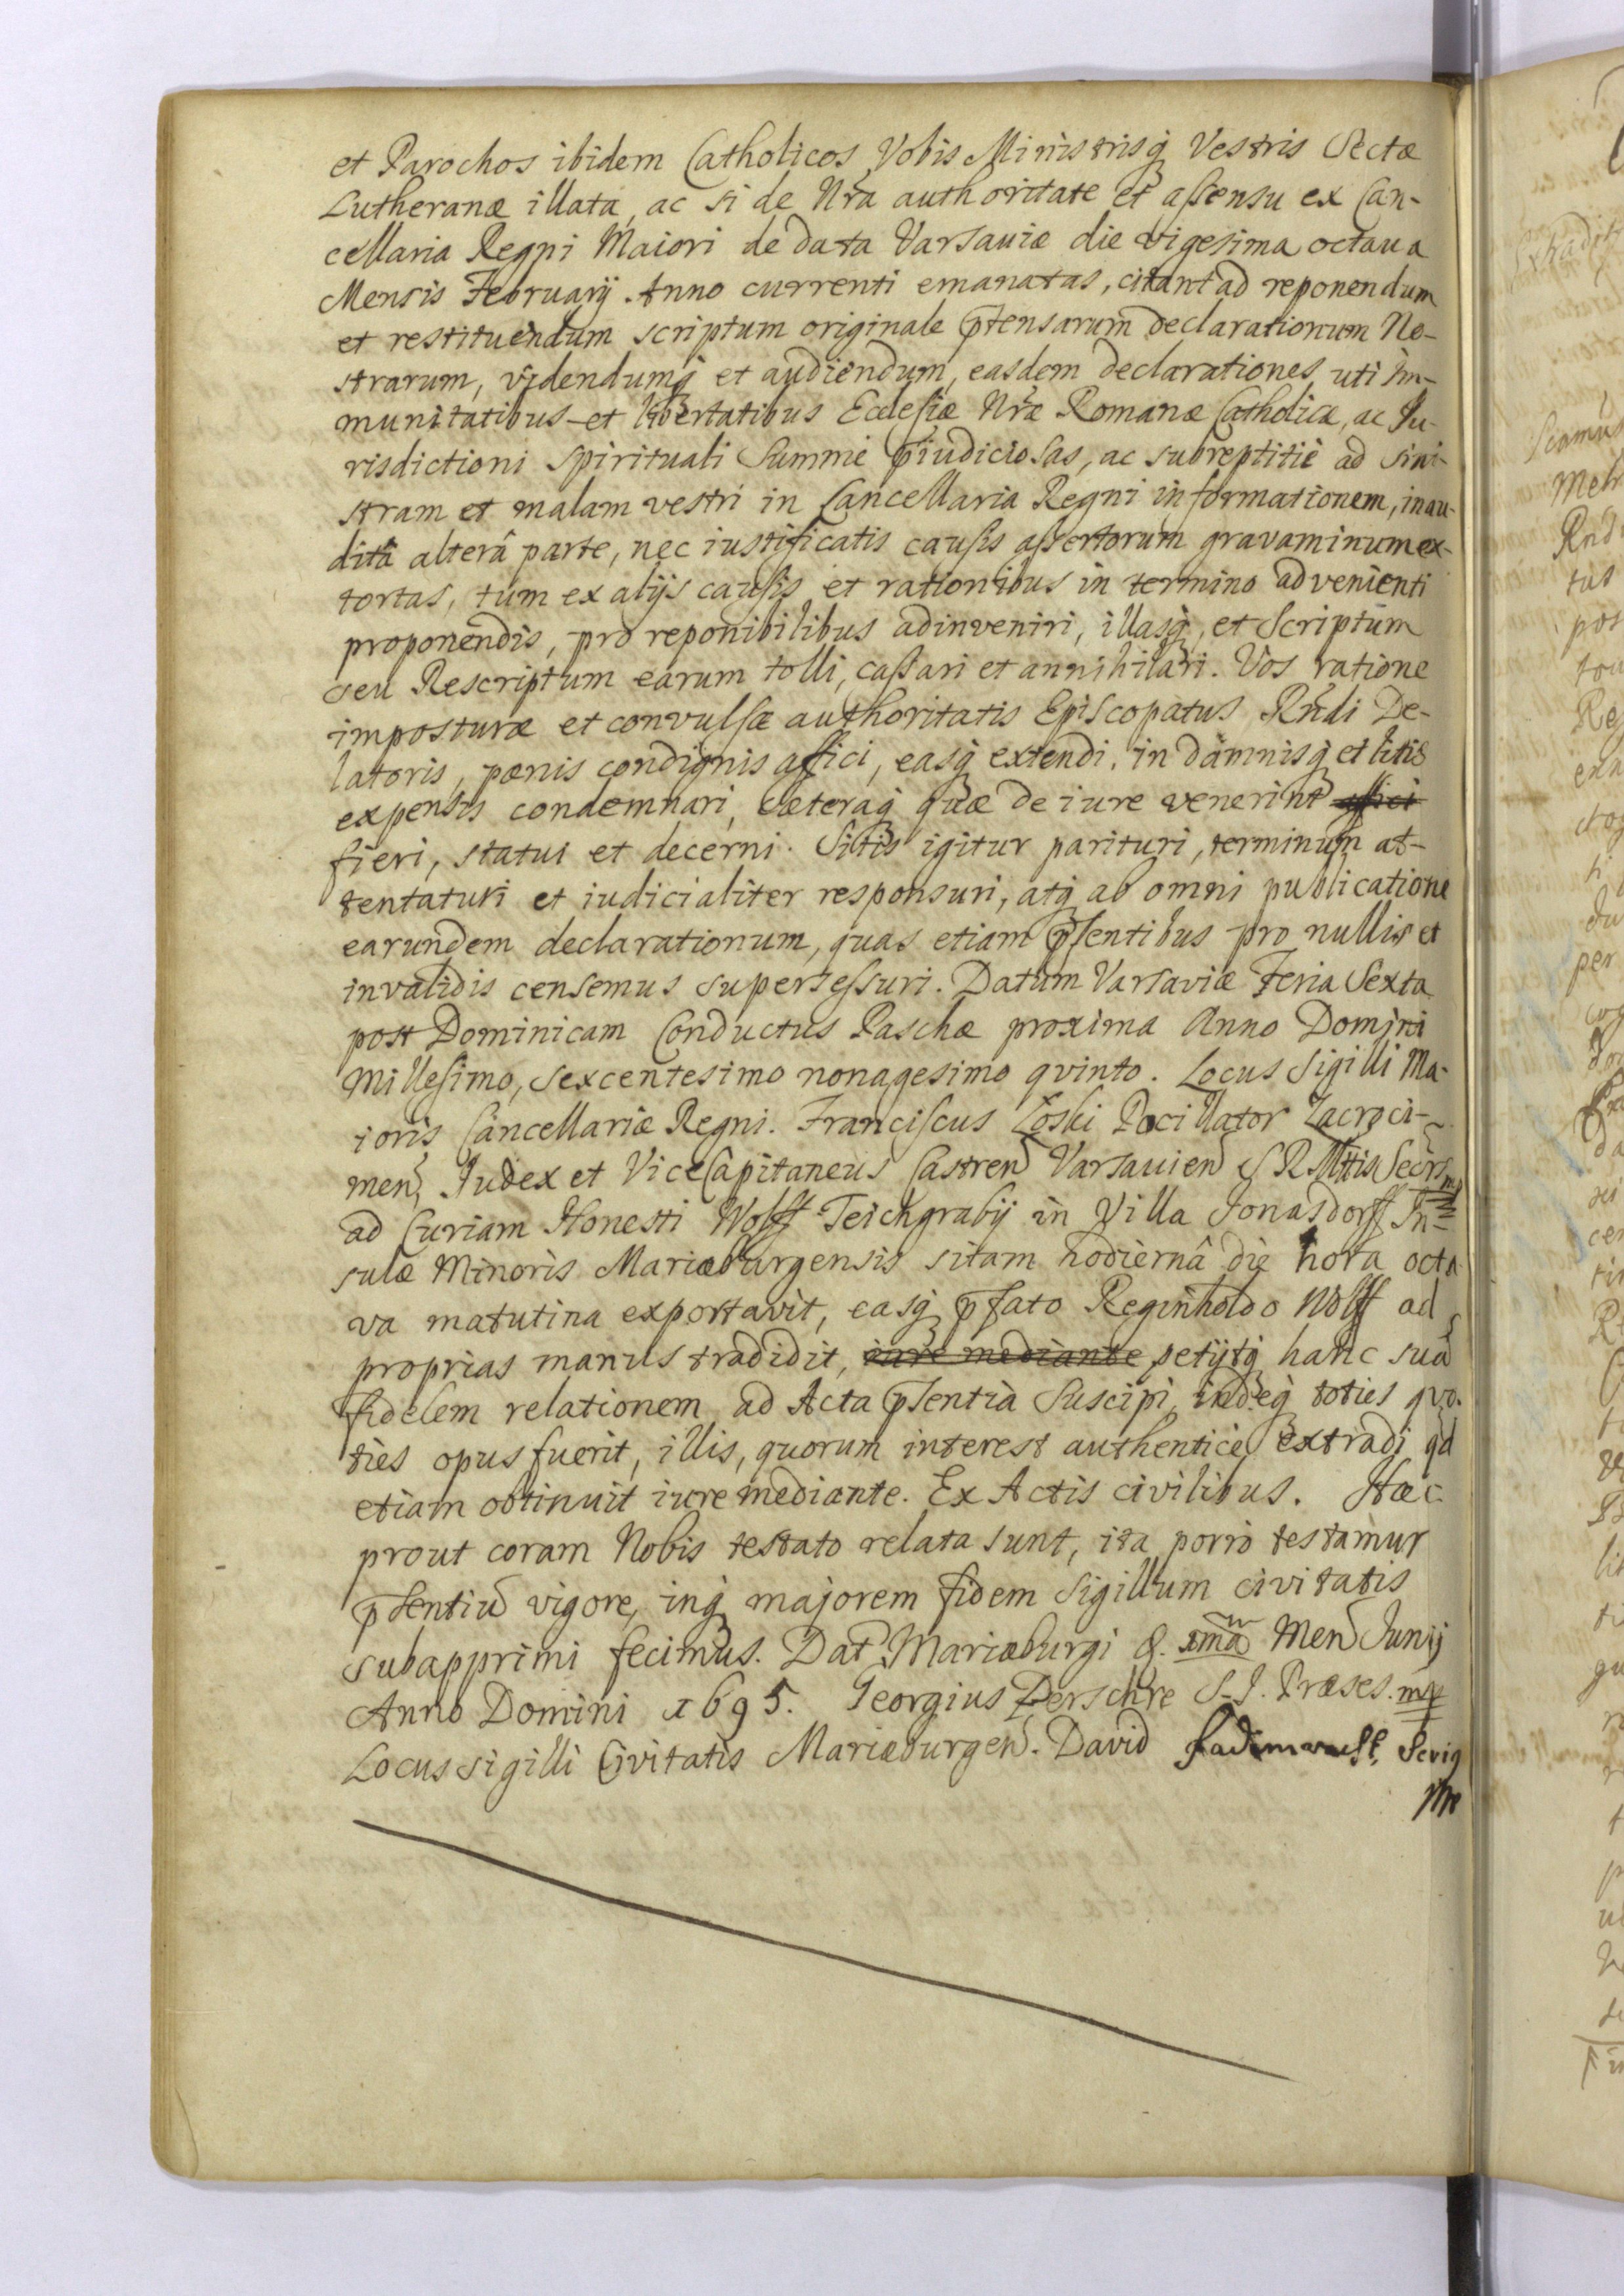 et Parochos ibidem Catholicos, Vobis Ministrisq̃ Vestris Sectæ
Lutheranæ illata, ac si de Nr̃a authoritate et assensu ex Can-
cellaria Regni Maiori de data Varsauiæ die vigesima octaua
Mensis Februarij Anno currenti emanatas, citant ad reponendum
et restituendum scriptum originale p̃tensarum declarationum No-
strarum, videndumq̃ et audiendum, easdem declarationes, uti Im-
munitatibus et libertatibus Ecclesiæ Nr̃æ Romanæ Catholicæ, ac Ju-
risdictioni Spirituali Summe p̃iudiciosas, ac subreptitiè ad sini-
stram et malam vestri in Cancellaria Regni informationem, inau-
ditâ alterâ parte, nec iustificatis causis assertorum gravaminum ex-
tortas, tùm ex alijs causis et rationibus in termino advenienti
proponendis, pro reponibilibus adinveniri, illasq̃, et Scriptum
seu Rescriptum earum tolli, cassari et annihilari. Vos ratione
imposturæ et convulsæ authoritatis Episcopatus Rñdi De-
latoris, pœnis condignis affici, easq̃ extendi, in damnisq̃ et litis
expensis condemnari, cæteraq̃ quæ de iure venerint affici
fieri, statui et decerni. Sitis igitur parituri, terminum at-
tentaturi et iudicialiter responsuri, atq̃ ab omni publicatione
earundem declarationum, quas etiam p̃sentibus pro nullis et
invalidis censemus supersessuri. Datum Varsaviæ Feria Sexta
post Dominicam Conductus Paschæ proxima Anno Domini
Millesimo, sexcentesimo nonagesimo qvinto. Locus Sigilli Ma-
ioris Cancellariæ Regni. Franciscus Łoski Pocillator Zacroci-
men̄, Judex et ViceCapitaneus Castren̄ Varsauien̄ S R Mtis Secr̃s mp
ad Curiam Honesti Wolff Teichgrabij in Villa Jonasdorff In-
sulæ Minoris Mariæburgensis sitam hodiernâ die hora octa
va matutina exportavit, easq̃ p̃fato Reginholdo Wolff ad
proprias manus tradidit, iure mediante petijtq̃ hanc suā
fidelem relationem ad Acta p̃sentia Suscipi, indeq̃ toties qvo-
ties opus fuerit, illis, quorum interest authenticè extradi qd
etiam obtinuit iure mediante. Ex Actis civilibus. Hæc
prout coram Nobis testato relata sunt, ita porrò testamur
p̃sentiū vigore, inq̃ majorem fidem Sigillum civitatis
subapprimi fecimus. Dat Mariæburgi 8. imā Men̄ Junij
Anno Domini 1695. Georgius Derschre S. J. Præses. mp
Locus sigilli Civitatis Mariæburgen̄. David